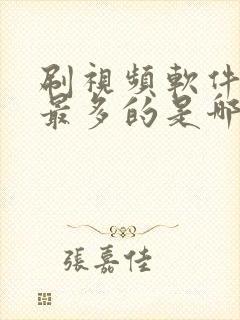 刷視頻軟件
最多的是哪
張嘉佳